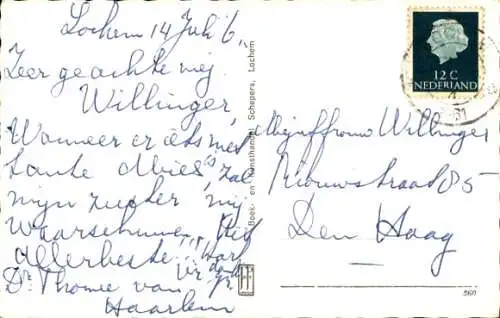 Lochem 14 Juli '6
Zeer geachte mej.
Willinger,
Wanneer er iets met
tante Mies is, zal
mijn zuster mij
waarschuwen.
Allerbeste
Dr. Thomee van
Haarlem
Boek- en Kunsthandel Schepers, Lochem
12 C
NEDERLAND
Mejuffrouw Willinger
Nieuwstraat 85
Den Haag